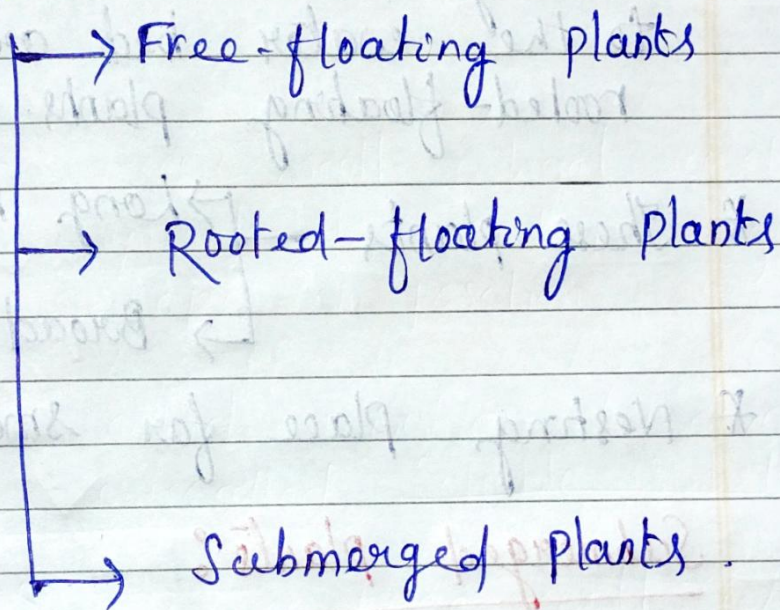 → Free-floating plants
→ Rooted-floating plants
→ Submerged plants.